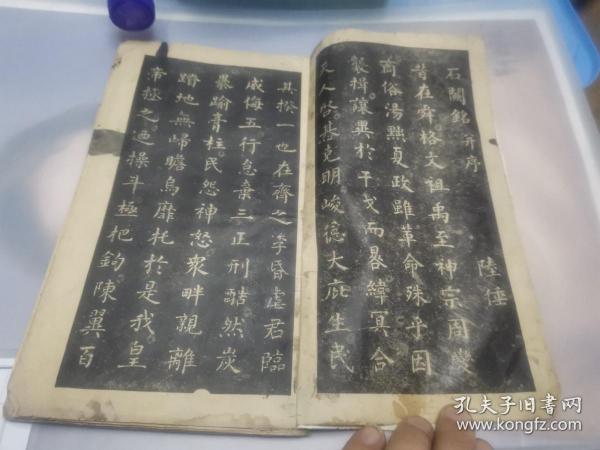 石闕銘 并序
陸倕
昔在舜格文祖禹至神宗周變
商俗湯黜夏政雖革命殊乎因
襲揖讓異於干戈而晷緯冥合
天人啓惎克明峻德大庇生民
其揆一也在齊之季昏虐君臨
威侮五行怠棄三正刑酷然炭
暴踰膏柱民怨神怒衆畔親離
蹐地無歸瞻烏靡托於是我皇
帝極之迺操斗極把鉤陳翼百
孔夫子旧書网
www.kongfz.com